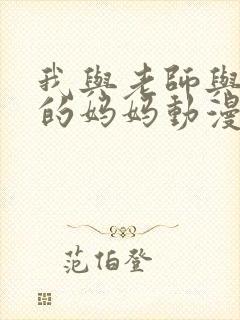 我與老師與
的媽媽動漫
范伯登